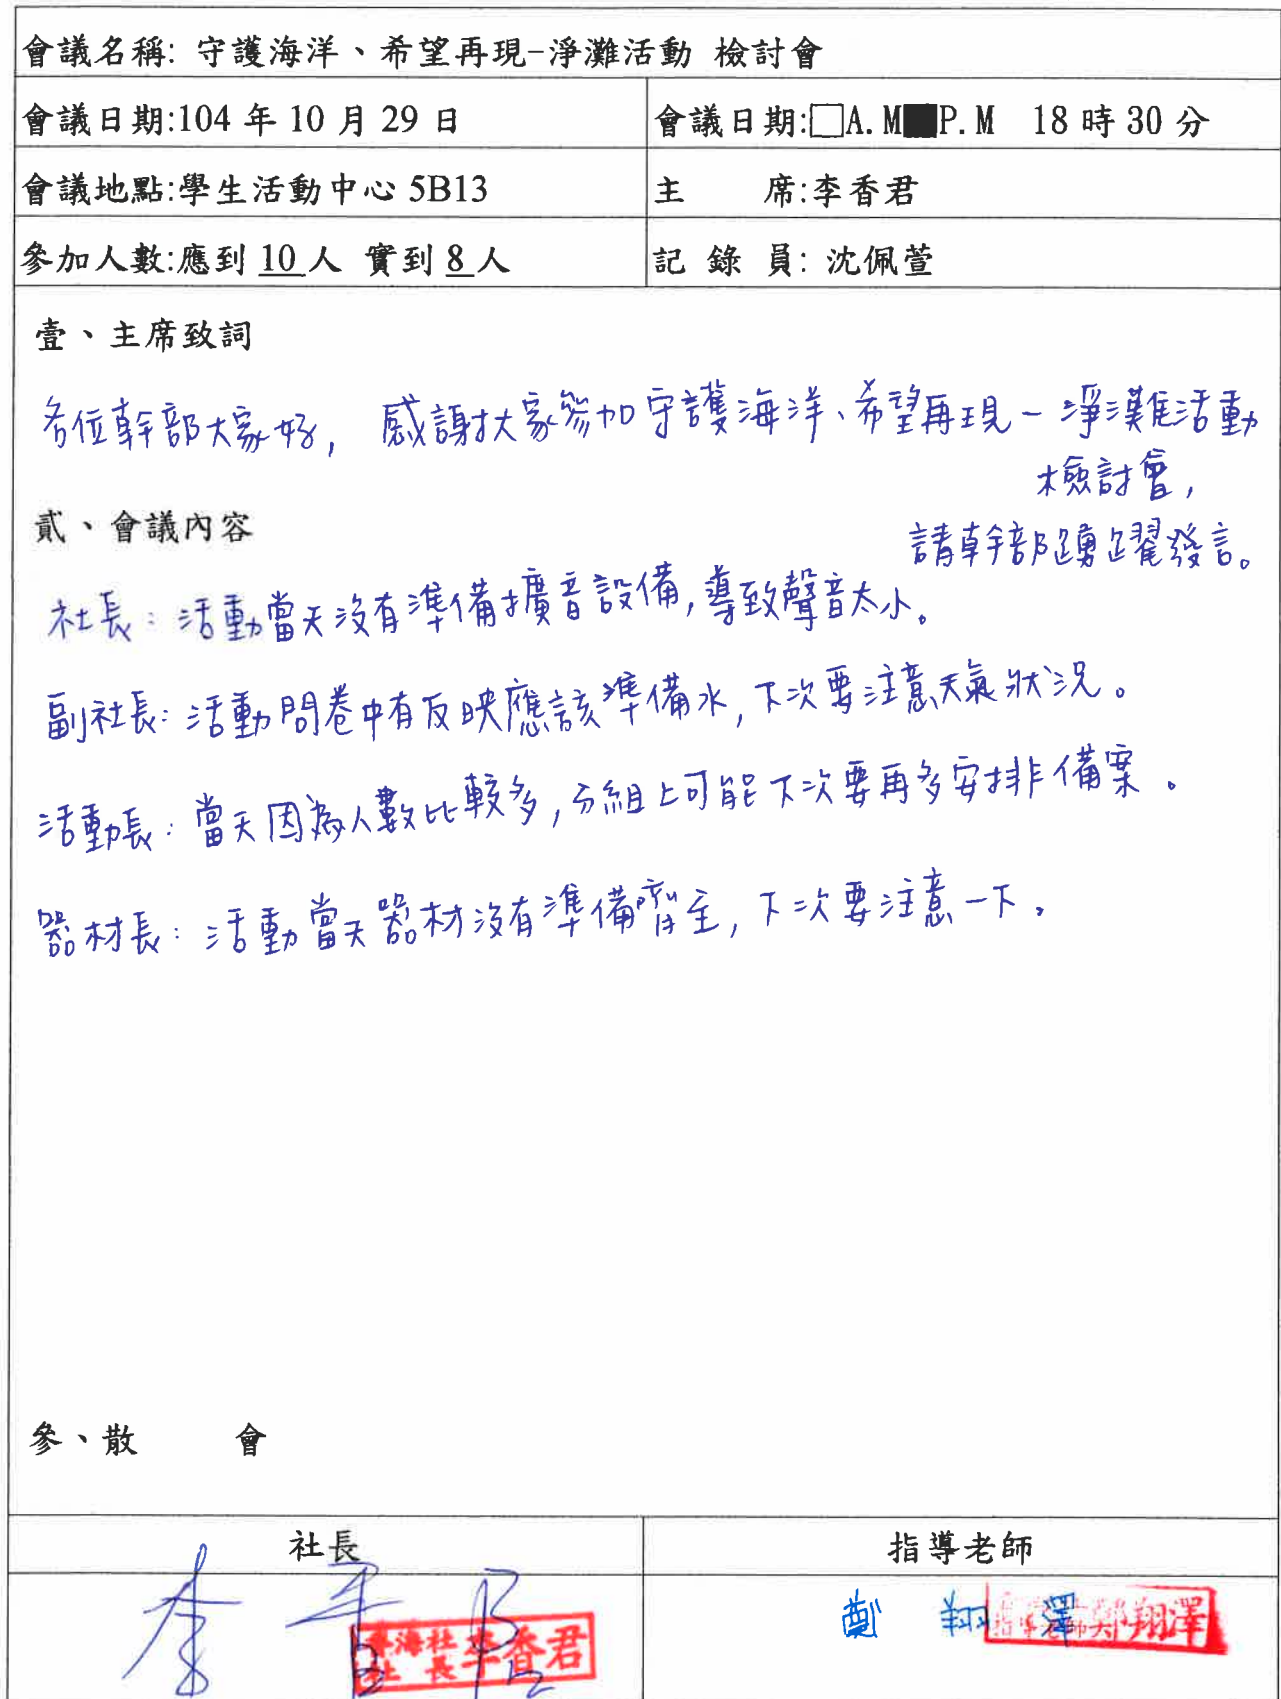 會議名稱: 守護海洋、希望再現-淨灘活動 檢討會
會議日期:104 年 10 月 29 日
會議日期:□A.M■P.M 18 時 30 分
會議地點:學生活動中心 5B13
主 席:李香君
參加人數:應到 10 人 實到 8 人
記 錄 員: 沈佩萱
壹、主席致詞
各位幹部大家好, 感謝大家參加守護海洋、希望再現-淨灘活動
檢討會,
貳、會議內容
請幹部踴躍發言。
社長:活動當天沒有準備擴音設備,導致聲音太小。
副社長:活動問卷中有反映應該準備水,下次要注意天氣狀況。
活動長:當天因為人數比較多,分組上可能下次要再多安排備案。
器材長:活動當天器材沒有準備齊全,下次要注意一下。
參、散 會
社長
指導老師
李香君
鄭 翔 澤
社長 李香君
指導老師鄭翔澤